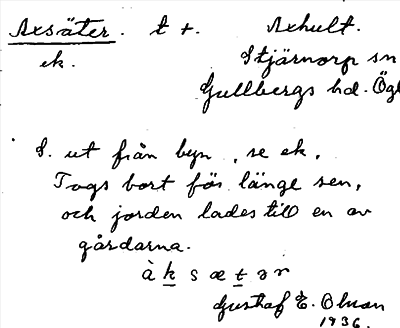 Axsäter. t +. Axhult.
ek. Stjärnorp sn
Gullbergs hd. Ögl
S. ut från byn, se ek.
Togs bort för länge sen,
och jorden lades till en av
gårdarna.
à k s æ t ə r
Gustaf E. Olman
1936.